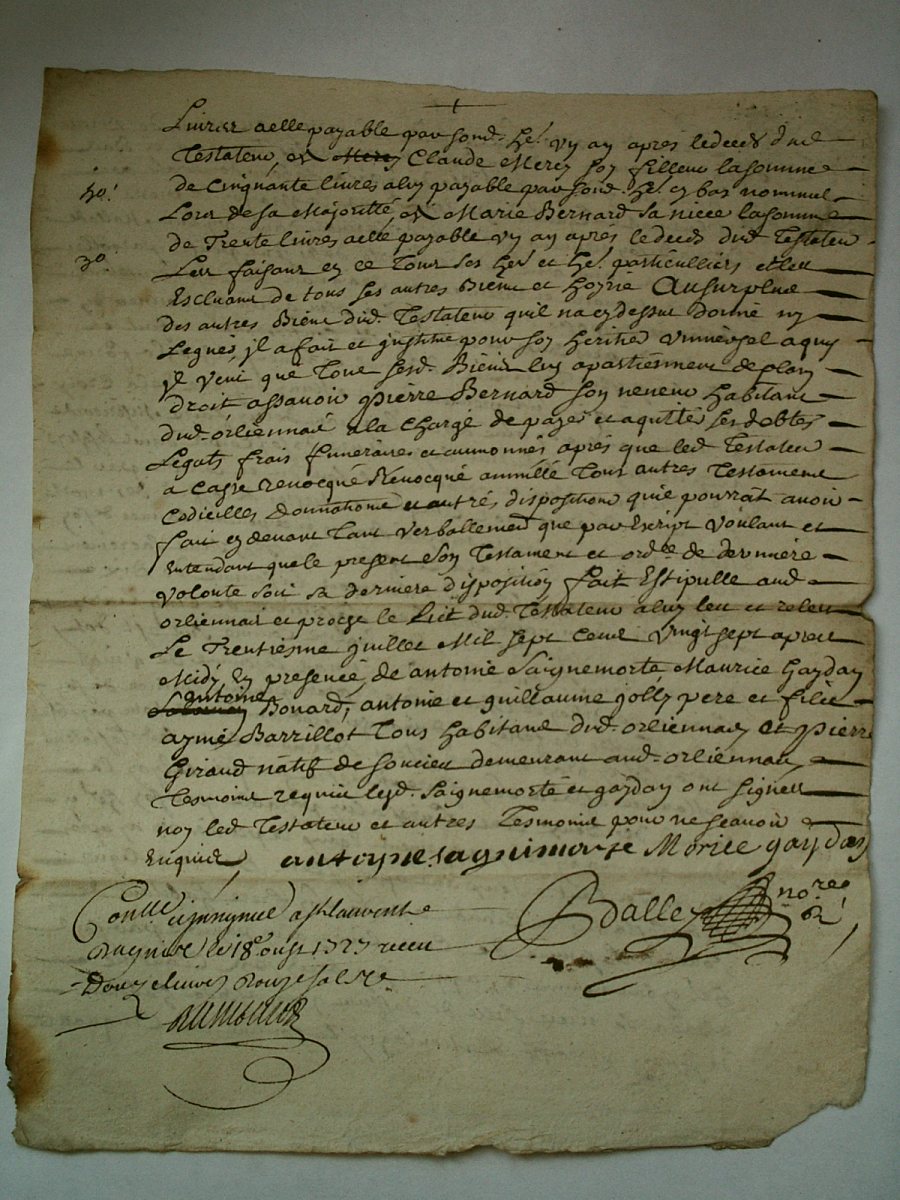 Livres a elle payable par sond. he.r un an apres le deced dud
Testateur, et a Claude Mercy son filleul la somme
50.l de Cinquante livres a luy payable par sond. he.r cy bas nommé
Lors de sa Majoritté, et a Marie Bernard sa niece la somme
30.l de Trente livres a elle payable un an apres le deced dud Testateur
Les faisant en ce Tous ses her.s et he.s particulliers et les
Escluant de tous ses autres Biens et hoyrie Au surplus
des autres Biens dud. Testateur qu'il n'a cy dessus donné ny
Legués, il a fait et institue pour son heritier universel a quy
il veut que Tous sesd. Biens luy apartiennent de plain
droit assavoir pierre Bernard son neveu habitant
dud. orliennas a la charge de payer et aquitter ses debtes
Legats frais funeraires et aumonnes apres que led Testateur
a casse revocqué Revocqué annullé Tous autres Testaments
Codicilles Donnations et autres dispositions qu'il pourroit avoir
fait cy devant Tant verballement que par Escript voulant et
Entendant que le present son Testament et ord.ce de derniere
volonte soit sa derniere disposition fait Estipullé aud
orliennas et proche le Lict dud. Testateur a luy leu et releu
Le Trentiesme juillet Mil sept Cent vingt sept apres
Midy En presence de antoine Saignemorte Maurice Gayday
antoine Bonard, antoine et guillaume jolly pere et fils
aymé Barrillot Tous habitans dud. orliennas et pierre
Giraud natif de soucieu demeurant aud. orliennas
Tesmoins requis lesd. Saignemorte et gayday ont signes
non led Testateur et autres Tesmoins pour ne scavoir
Enquis, antoyne sagnimorte Morice gayday
Dalley no.re
Con.lle et insinué a St laurent
dagnie le 18e oust 1727 receu
Douze livres